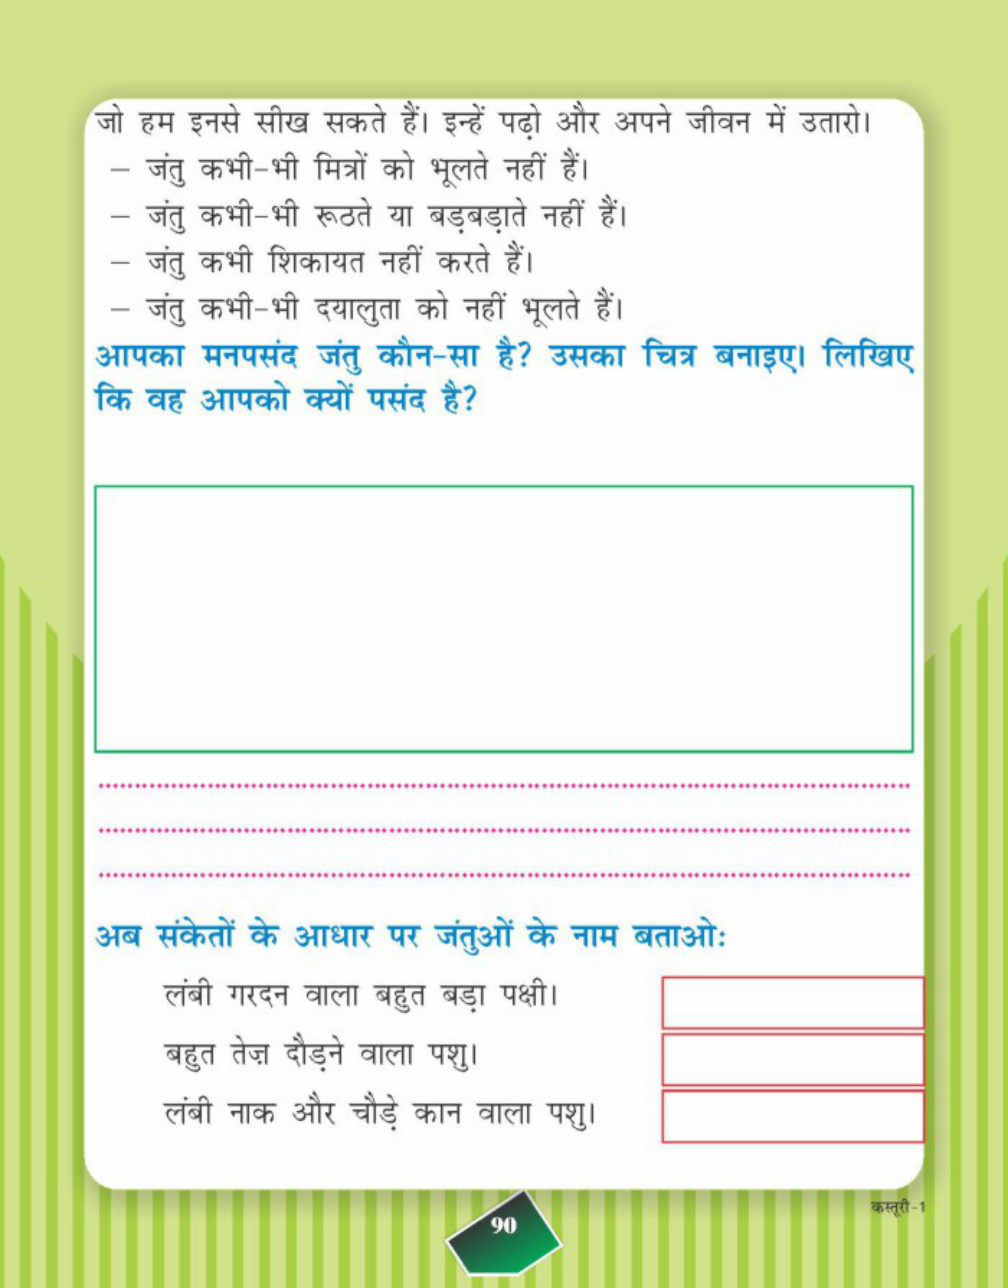 जो हम इनसे सीख सकते हैं। इन्हें पढ़ो और अपने जीवन में उतारो।
– जंतु कभी-भी मित्रों को भूलते नहीं हैं।
– जंतु कभी-भी रूठते या बड़बड़ाते नहीं हैं।
– जंतु कभी शिकायत नहीं करते हैं।
– जंतु कभी-भी दयालुता को नहीं भूलते हैं।
आपका मनपसंद जंतु कौन-सा है? उसका चित्र बनाइए। लिखिए
कि वह आपको क्यों पसंद है?
अब संकेतों के आधार पर जंतुओं के नाम बताओः
लंबी गरदन वाला बहुत बड़ा पक्षी।
बहुत तेज़ दौड़ने वाला पशु।
लंबी नाक और चौड़े कान वाला पशु।
कस्तूरी-1
90